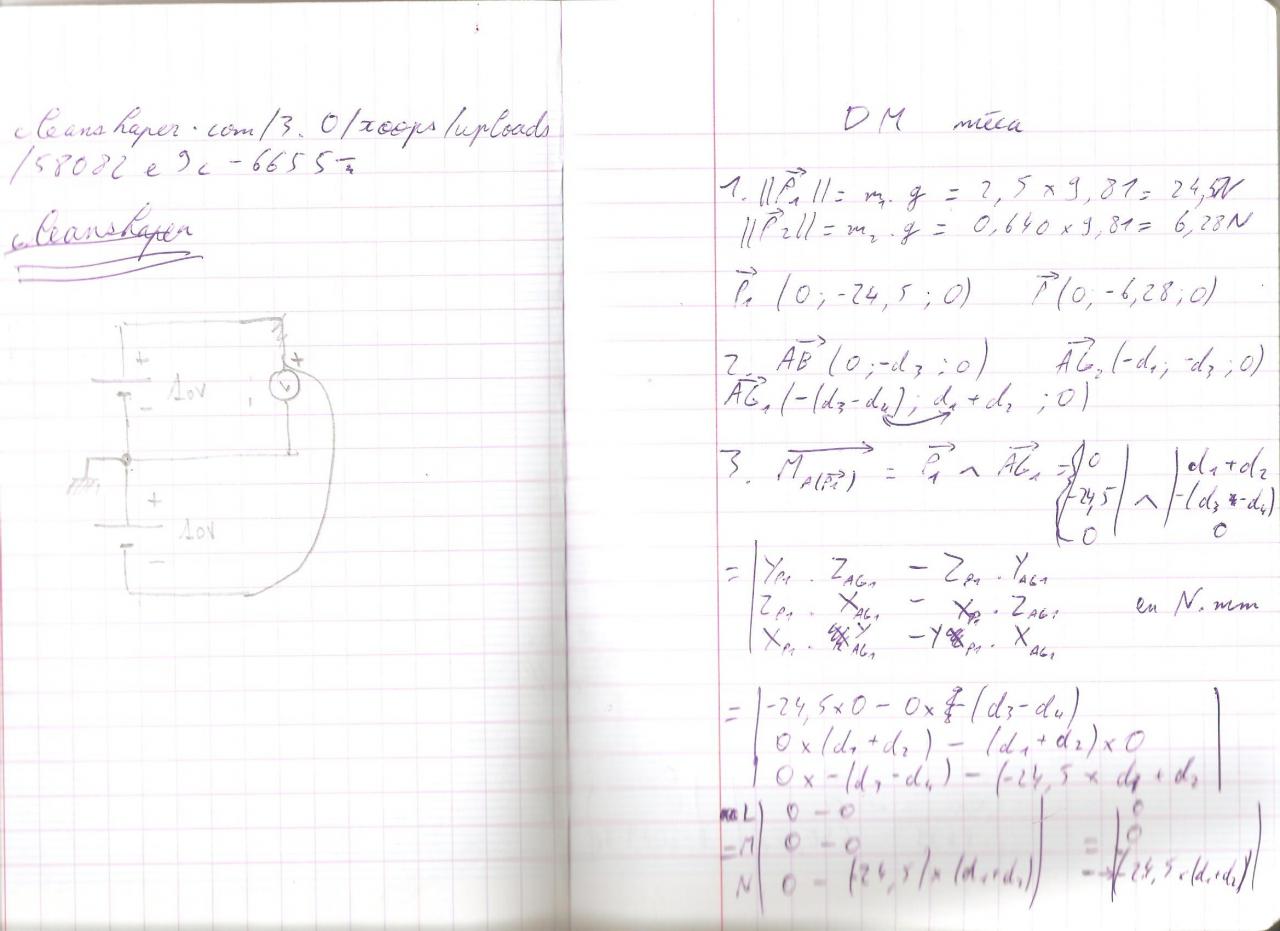 cleanshaper.com/3.0/xoops/uploads
/58082e9c-6655
cleanshaper
+
10V
-
+
V
+
10V
-
DM méca
1. ||P₁|| = m₁.g = 2,5 x 9,81 = 24,5N
||P₂|| = m₂.g = 0,640 x 9,81 = 6,28N
P₁ (0; -24,5; 0) P (0; -6,28; 0)
2. AB (0; -d₃; 0) AG₂ (-d₁; -d₃; 0)
AG₁ (-(d₃-d₄); d₁+d₂; 0)
3. M A(P₁) = P₁ ∧ AG₁ = {0 | -24,5 | 0 ∧ | d₁+d₂ | -(d₃-d₄) | 0
= | Y P₁ . Z AG₁ - Z P₁ . Y AG₁
Z P₁ . X AG₁ - X P₁ . Z AG₁ en N.mm
X P₁ . Y AG₁ - Y P₁ . X AG₁
= | -24,5x0 - 0x-(d₃-d₄)
0x(d₁+d₂) - (d₁+d₂)x0
0x-(d₃-d₄) - (-24,5 x d₁+d₂
L | 0 - 0 | 0
= M | 0 - 0 | = | 0
N | 0 - (-24,5)x(d₁+d₂) | -24,5x(d₁+d₂)